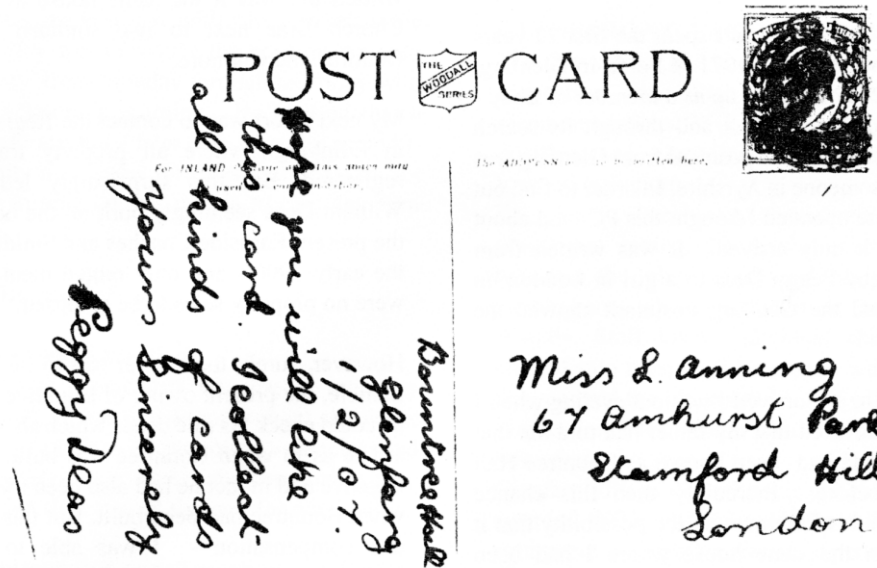 POST CARD
THE
WOODALL
SERIES
For INLAND Postage only this Above only
The ADDRESS to be written here.
Bountree Hall
Glanfang
1/2/07.
Hope you will like
this card. I collect
all kinds of cards
Yours Sincerely
Peggy Deas
Miss L. Anning
67 Amhurst Park
Stamford Hill
London